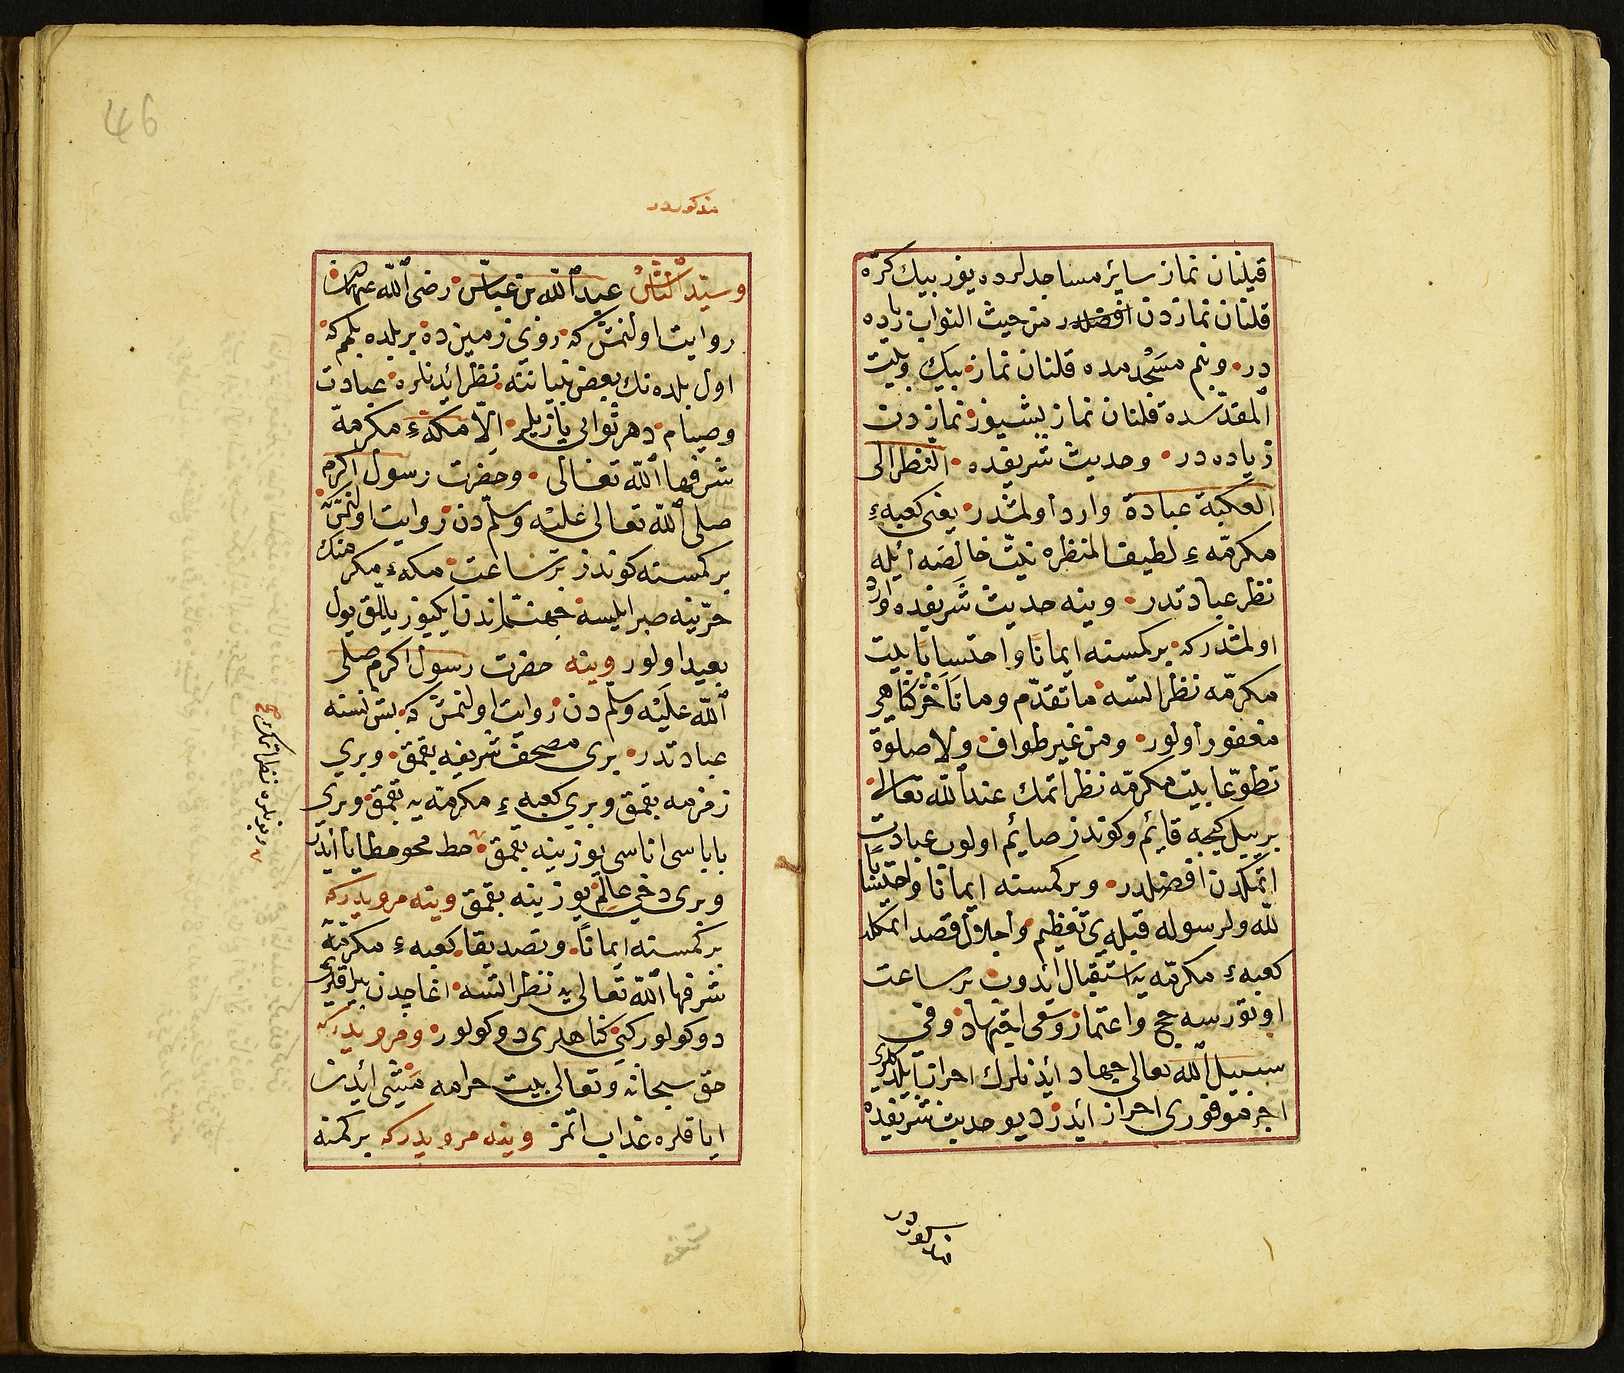 قیلنان نماز سائر مساجدلرده یوز بیك كرّه
قلنان نمازدن افضلدر من حیث الثواب زیاده
در وبنم مسجدمده قلنان نماز بیك وبیت
المقدّسده قلنان نماز بشیوز نمازدن
زیاده در وحدیث شریفده النظر الی
الكعبة عبادة وارد اولمشدر یعنی كعبهٔ
مكرّمهٔ لطیف المنظره نیّت خالصه ایله
نظر عبادتدر وینه حدیث شریفده وارد
اولمشدركه بر كمسنه ایمانا واحتسابا بیت
مكرّمه نظر ایتسه ما تقدّم وما تأخّر كناهی
مغفور اولور ومن غیر طواف ولا صلوة
تطوّعا بیت مكرّمه نظر اتمك عند الله تعالی
بر ییل كیجه قائم وكوندز صایم اولوب عبادت
اتمكدن افضلدر وبر كمسنه ایمانا واحتسابا
لله ولرسوله قبله‌یی تعظیم واجلال قصد اتمكله
كعبهٔ مكرّمه یه استقبال ایدوب بر ساعت
اوتورسه حج واعتمار وسعی اجتهاد وفی
سبیل الله تعالی جهاد ایدنلرك احراز ایلدكلری
اجر موفوری احراز ایدر دیو حدیث شریفده
مذكوردر
46
مذكوردر
وسیّد النّاس عبد الله بن عبّاس رضی الله عنهمادن
روایت اولنمش كه روی زمینده بر بلده بلمم كه
اول بلده نك بعض بنیاننه نظر ایدنلره عبادت
وصیام دهر ثوابی یازیلر الّا مكهٔ مكرمه
شرفها الله تعالی وحضرت رسول اكرم
صلی الله تعالی علیه وسلّمدن روایت اولنمش
بر كمسنه كوندز بر ساعت مكهٔ مكرمنك
حرّینه صبر ایلیسه جهنّملرندن ایكییوز ییللق یول
بعید اولور وینه حضرت رسول اكرم صلی
الله علیه وسلّمدن روایت اولنمش كه بش نسنه
عبادتدر بری مصحف شریفه بقمق وبری
زمزمه بقمق وبری كعبهٔ مكرمه یه بقمق وبری
باباسی اناسی یوزینه بقمق حط محو خطایا ایدر
وبری دخی عالم یوزینه بقمق وینه مرویدركه
بر كمسنه ایمانا وتصدیقا كعبهٔ مكرّمه
شرفها الله تعالی یه نظر ایتسه اغاجدن یپراقلری
دوكولور كبی كناهلری دوكولور ومرویدركه
حق سبحانه وتعالی بیت حرامه مشی ایدن
ایاقلره عذاب اتمز وینه مرویدركه بر كمسنه
وبونلره نظر اتمك